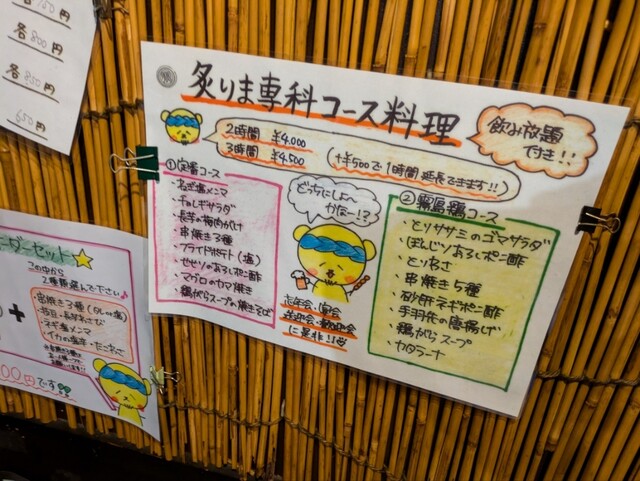 各750円
各800円
各850円
650円
炙りま専科コース料理
飲み放題
付き!!
2時間 ¥4.000
3時間 ¥4.500
(+¥500で1時間延長できます!!)
①定番コース
・ねぎ塩メンマ
・チョレギサラダ
・長芋の梅肉がけ
・串焼き3種
・フライドポテト(塩)
・せせりのおろしポン酢
・マグロのカマ焼き
・鶏がらスープの焼きそば
どっちにしよ〜
かな〜!?
忘年会・宴会
に是非!!
②霧島鶏コース
・とりササミのゴマサラダ
・ぼんじりおろしポン酢
・とりわさ
・串焼き5種
・砂肝ネギポン酢
・手羽先の唐揚げ
・鶏がらスープ
・カタラーナ
ーダーセット☆
この中から
2種類選んで下さい♪
・串焼き3種(タレor塩)
・ネギ塩メンマ
00円です